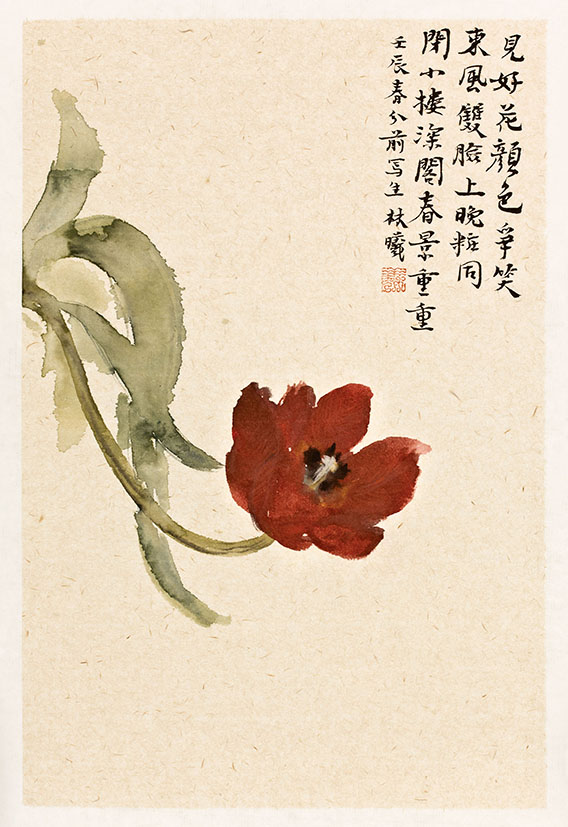 見好花顔色爭笑
東風雙臉上晚粧同
閉小樓深閣春景重重
壬辰春分前写生 林曦